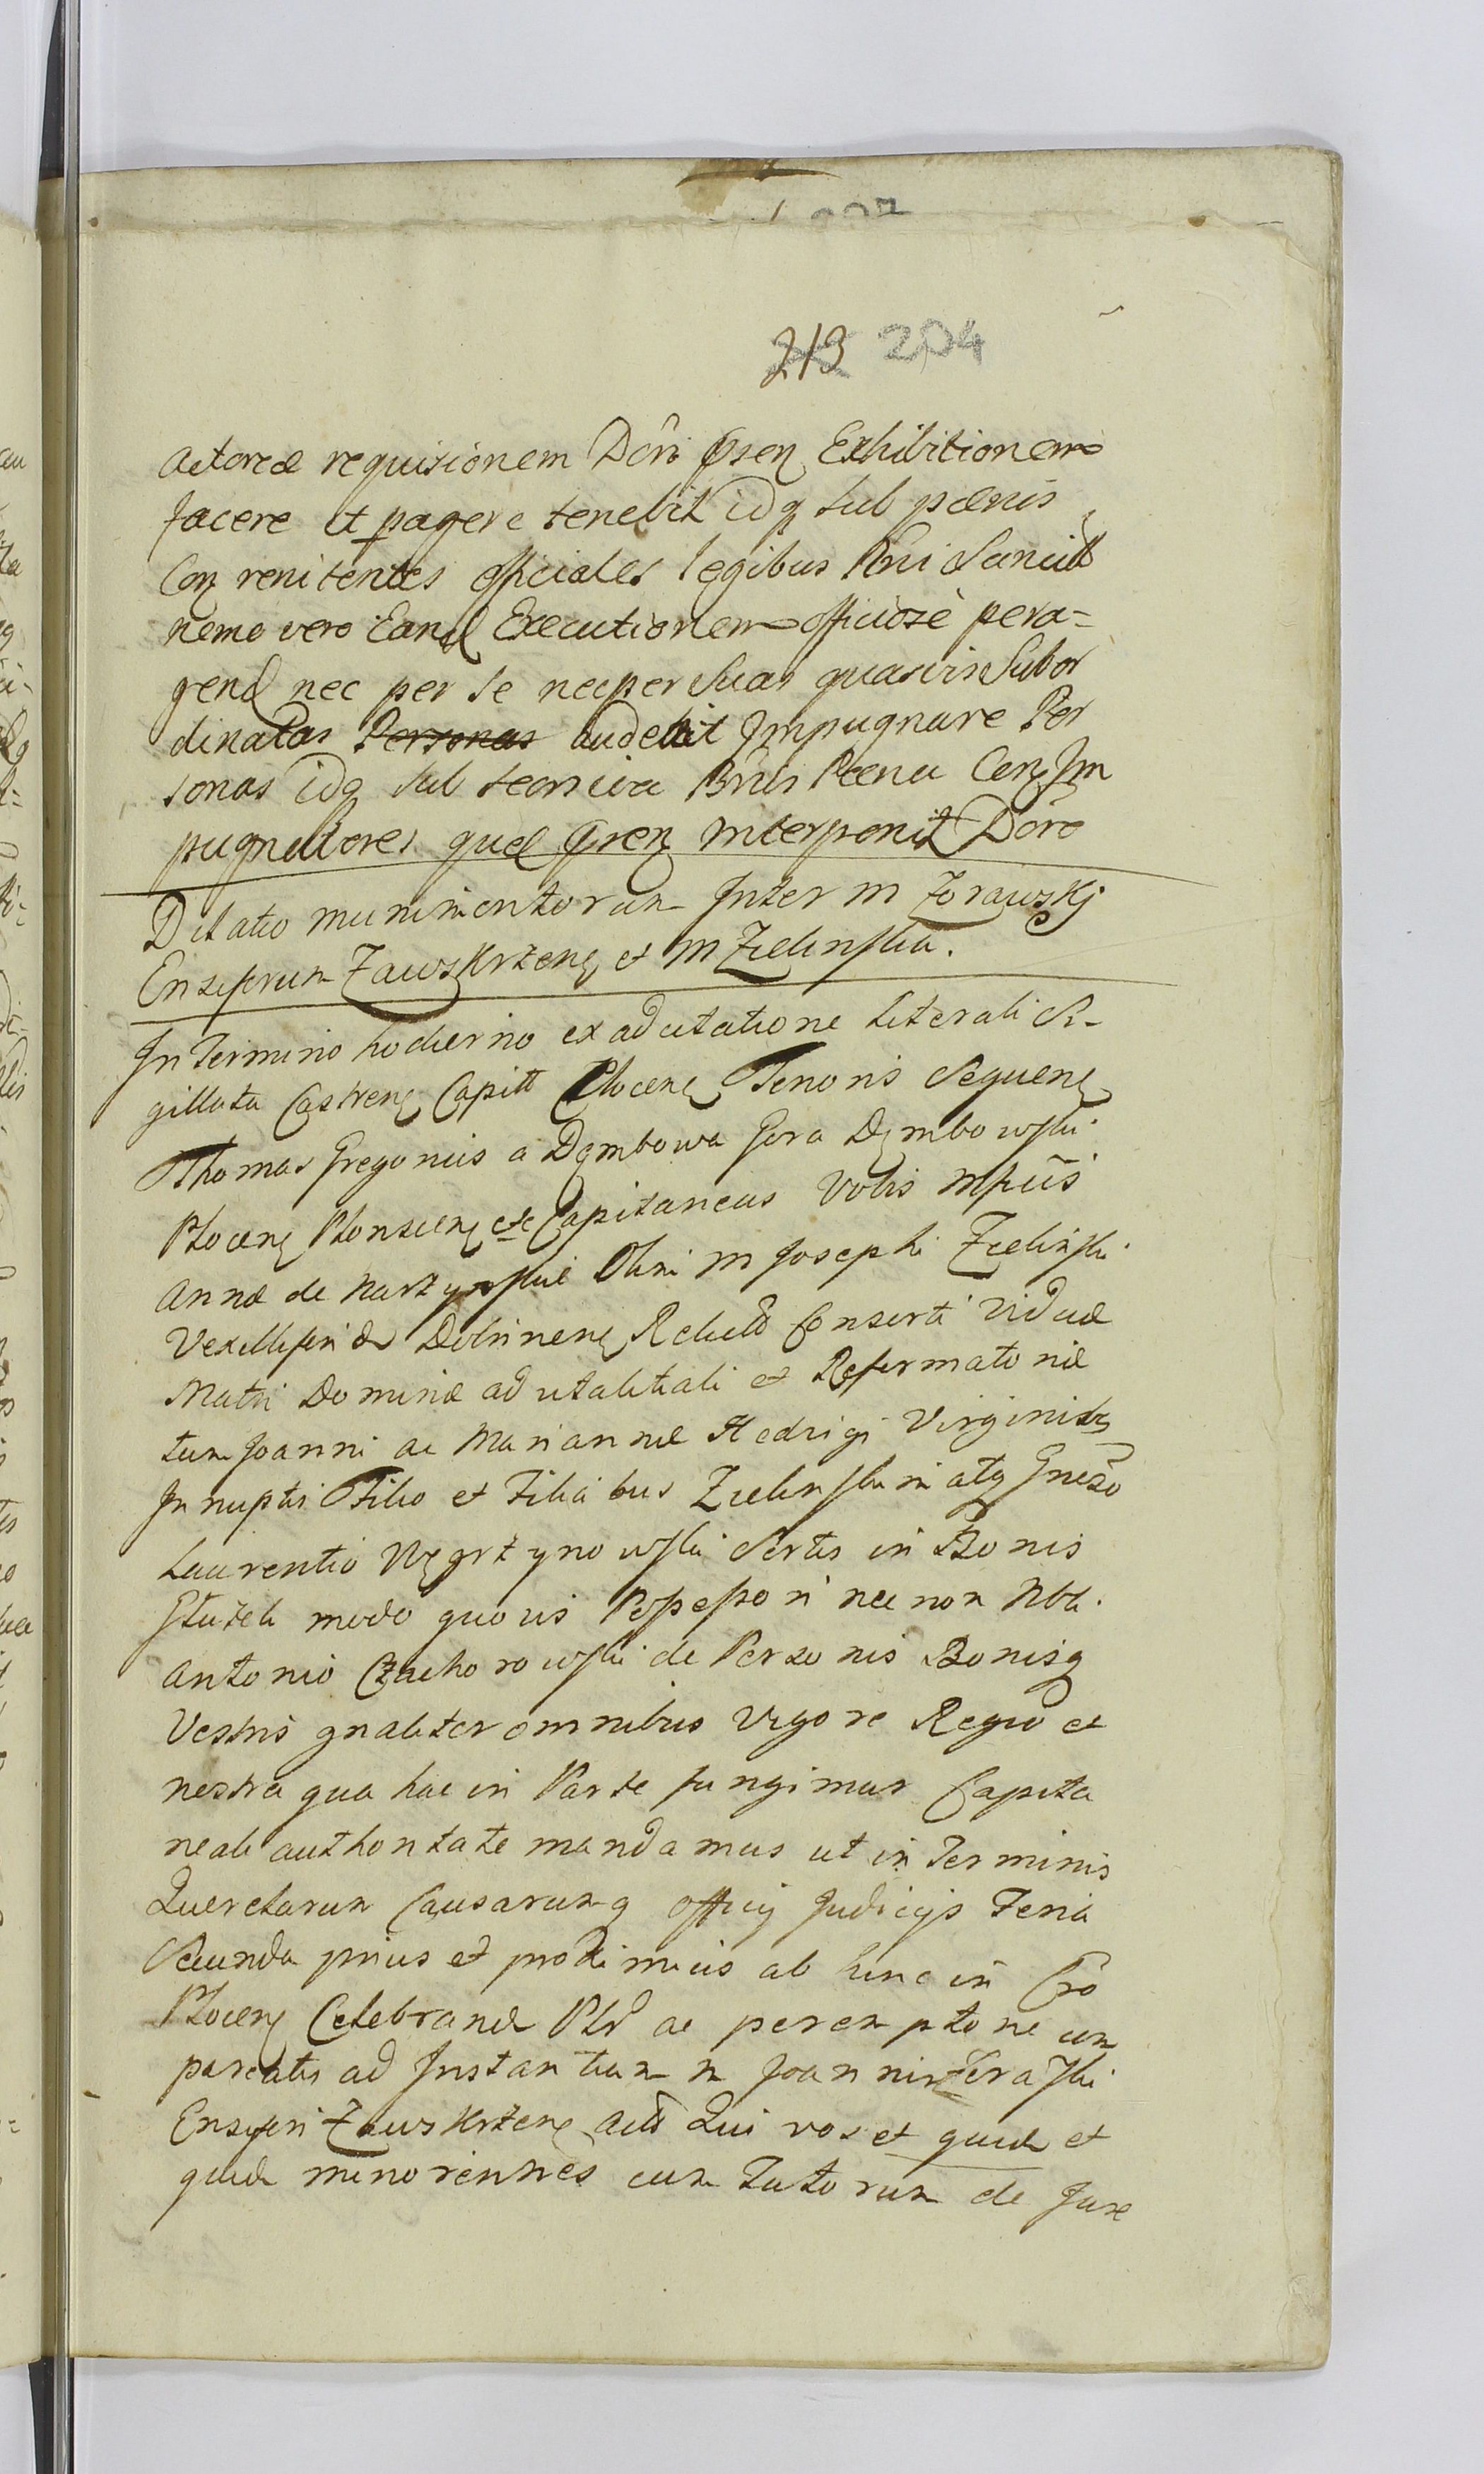 213 204
actoreæ requisionem Dôri pseñ Exhibitionem
facere et pagere tenebit idq sub pœnis
Con renitentes officiales legibus Rñi Sancitt
nemo vero Eand Executionem officiosè pera=
gend nec per se nec per Suas quasvis Subor
dinatas Personas audebit Impugnare Per
sonas idq sub Banis Pœna Con Im
pugnatores quæ pren interponit Dôro
Dilatio munimentorum Inter M Zorawskj
Ensiferum Zawskrzen et M Zielinska.
In Termino hodierno ex ad citatione literali Si-
gillata Castren Capitt Plocen Tenoris Sequen
Thomas Gregorius a Dęmbowa Gora Dęmbowski
Plocen Plonscen etc Capitaneus Vobis Mficis
Annæ de Karzynskie Olim M Josephi Zielinski
Vexilliferi Dobrinen Relictæ Consorti Viduæ
Matri Dominæ advitalitiali et Reformatoriæ
tum Joanni ac Mariannæ Hedvigi Virginibs
Innuptis Filio et Filiabus Zielinskim atq Gneso
Laurentio Węgrzynowski Sortis in Bonis
modo quovis Possessori nec non Nbli.
Antonio Czachorowski de Personis Bonisq
Vestris gnaliter omnibus Vigore Regio et
nostra qua hac in Parte fungimur Capita
neali authoritate mandamus ut in Terminis
Querelarum Causarumq officij Judicijs Feria
Secunda prius et proximius ab hinc in Cro
Plocen Celebrand Pltr ac peremptorie com
pareatis ad Instantiam M Joannis Zoraski
Ensiferi Zawskrzen Act Qui vos et quid et
quid minorennes cum Tutorum de Jure